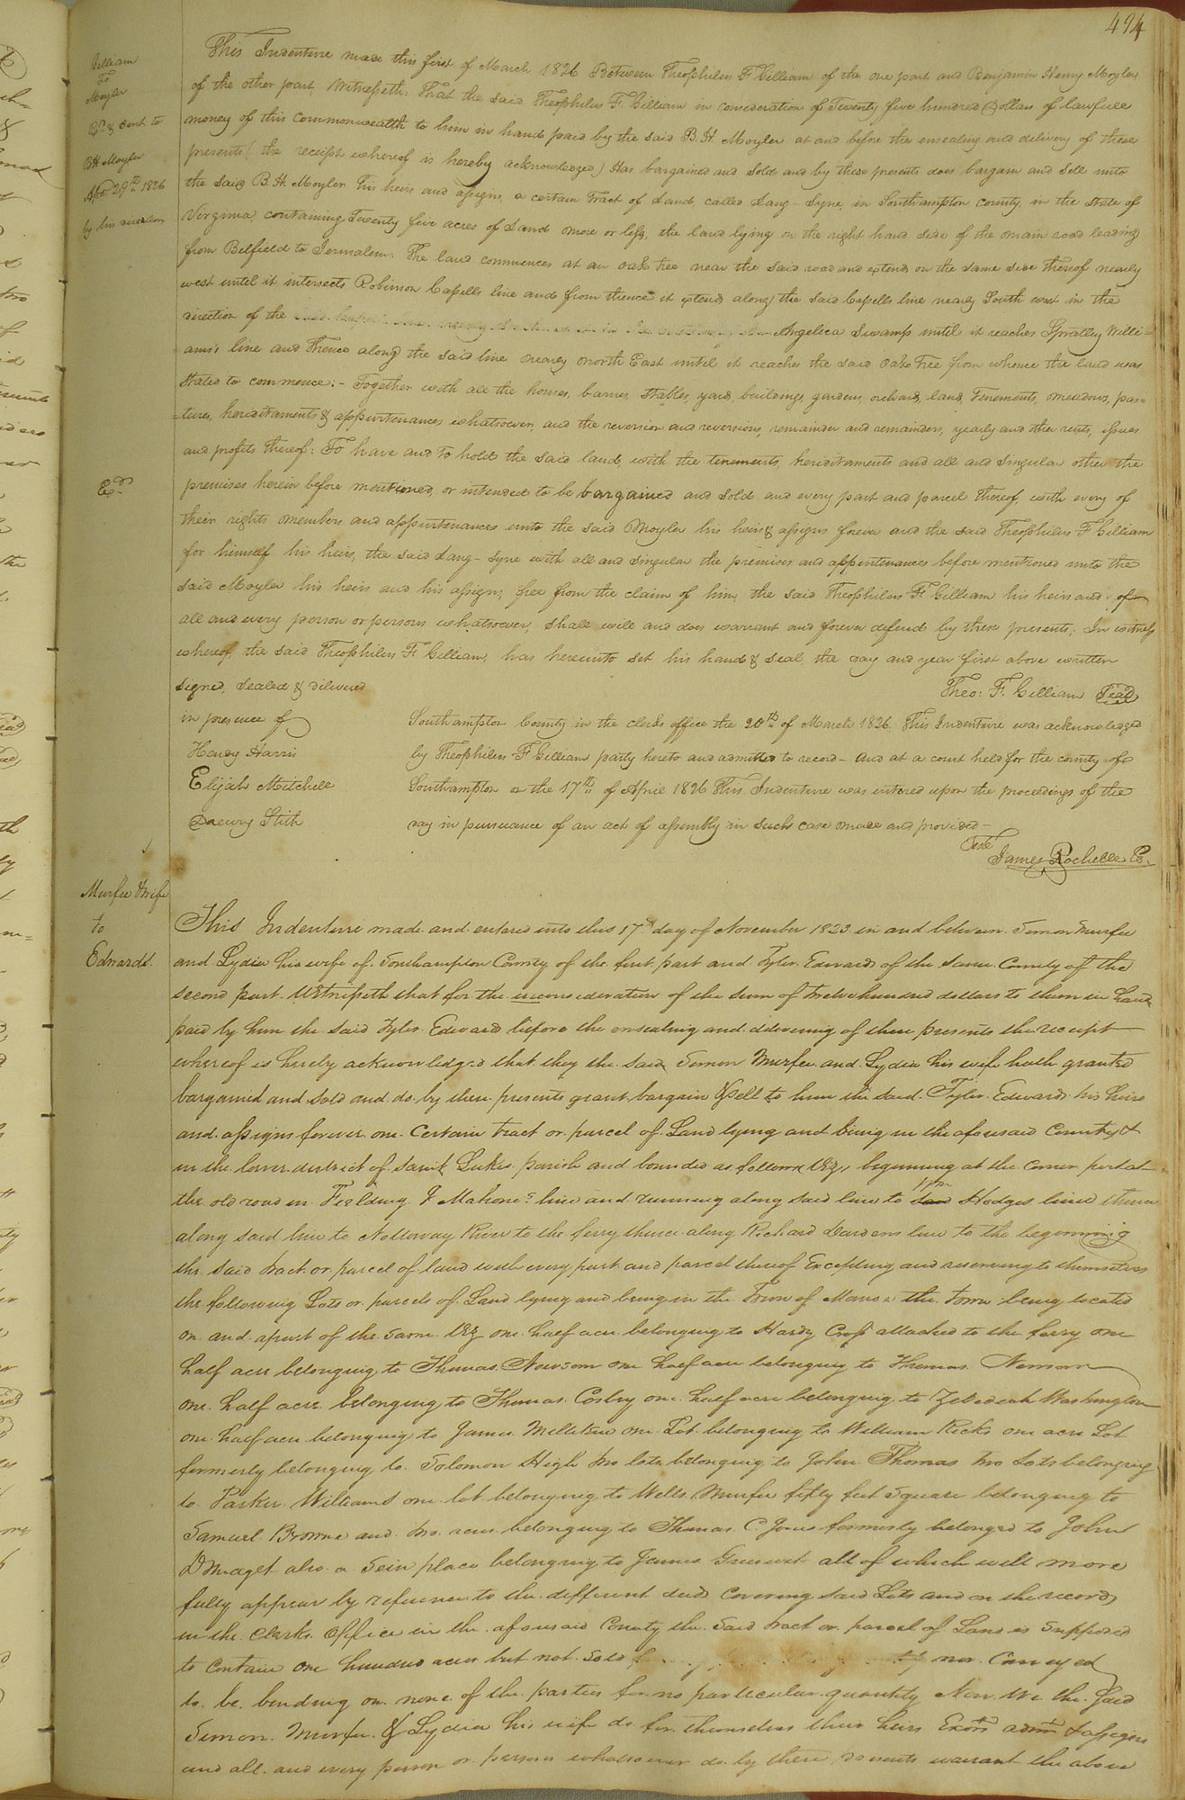 494
Gilliam
To
Moyler
Exd & sent to
B H Moyler
29th 1826
This Indenture made this first of March 1826 Between Theophilus F. Gilliam of the one part and Benjamin Henry Moyler
of the other part, Witnesseth: That the said Theophilus F. Gilliam in consideration of Twenty five hundred Dollars of lawfull
money of this commonwealth to him in hand paid by the said B. H. Moyler at and before the ensealing and delivery of these
presents (the receipt whereof is hereby acknowledged) Has bargained and sold and by these presents does bargain and Sell unto
the said B. H. Moyler his heirs and assigns, a certain Tract of Land, called Lang-Syne in Southampton county in the State of
Virginia, containing Twenty five acres of Land more or less, the land lying on the right hand side of the main road leading
from Belfield to Jerusalem. The land commences at an oak tree near the said road and extends on the same side thereof nearly
west until it intersects Robinson Capells line and from thence it extends along the said Capells line nearly South west in the
direction of the Angelica Swamp until it reaches Spratley Willi-
ams's line and thence along the said line nearly North East until it reaches the said Oak Tree from whence the land was
stated to commence:- Together with all the houses, barnes, stables, yards, buildings, gardens, orchards, land, Tenements, meadows, pas-
tures, hereditaments & appurtenances whatsoever, and the reversion and reversions, remainder and remainders, yearly and other rents, issues
and profits thereof: To have and to hold the said land, with the tenements, hereditaments and all and singular other the
Exd
premises herein before mentioned, or intended to be bargained and sold and every part and parcel thereof, with every of
their rights members and appurtenances unto the said Moyler his heirs & assigns forever and the said Theophilus F Gilliam
for himself his heirs, the said Lang-Syne with all and singular the premises and appurtenances before mentioned unto the
said Moyler his heirs and his assigns, free from the claim of him, the said Theophilus F. Gilliam his heirs and of
all and every person or persons whatsoever, shall will and does warrant and forever defend by these presents: In witness
whereof, the said Theophilus F. Gilliam, has hereunto set his hand & seal, the day and year first above written
Signed, Sealed & delivered Theo: F. Gilliam Seal
in presence of Southampton County in the clerks office the 20th of March 1826. This Indenture was acknowledged
Henry Harris by Theophilus F Gilliam party hereto and admitted to record - And at a court held for the county of
Elijah Mitchell Southampton on the 17th of April 1826 This Indenture was entered upon the proceedings of the
Drewry Stith day in pursuance of an act of assembly in such case made and provided-
Teste
James Rochelle Ck.
Murfee & wife
to
Edwards.
This Indenture made and entered into this 17th day of November 1823 in and between Simon Murfee
and Lydia his wife of Southampton County of the first part and Tyler Edwards of the Same County of the
second part. Witnesseth that for the inconsideration of the Sum of twelve hundred dollars to them in hand
paid by him the said Tyler Edwards before the ensealing and delivering of these presents the receipt
whereof is hereby acknowledged that they the said Simon Murfee and Lydia his wife hath granted
bargained and sold and do by these presents grant bargain & sell to him the said Tyler Edwards his heirs
and assigns forever one Certain tract or parcel of Land lying and being in the aforesaid County &
in the lower district of Saint Lukes parish and bounded as follows Viz, beginning at the Corner
the old road in Fielding J Mahone's line and running along said line to Hodges line thence
along said line to Nottoway River to the ferry thence along Richard Dardens line to the beginning
the said tract or parcel of land with every part and parcel thereof Excepting and reserving to themselves
the following Lots or parcels of Land lying and being in the Town of the town being located
on and a part of the Same Viz one half acre belonging to Hardy Cross attached to the ferry one
half acre belonging to Thomas Newsom one half acre belonging to Thomas Newsom
one half acre belonging to Thomas one half acre belonging to Zebedeah Washington
one half acre belonging to James one Lot belonging to William Ricks one acre Lot
formerly belonging to Solomon High two lots belonging to John Thomas two Lots belonging
to Parker Williams one lot belonging to Wells Murfee fifty feet Square belonging to
Samuel Browne and two acres belonging to Thomas C Jones formerly belonged to John
D Maget also a Sein place belonging to James all of which will more
fully appear by reference to the different deeds Covering said Lots and on the records
in the Clerks Office in the aforesaid County the said tract or parcel of Land is Supposed
to Contain one hundred acres but not Sold nor Conveyed
to be binding on none of the parties for no particular quantity Now We the said
Simon Murfee & Lydia his wife do for themselves their heirs Exors admrs & assigns
and all and every person or persons whatsoever do by these presents warrant the above